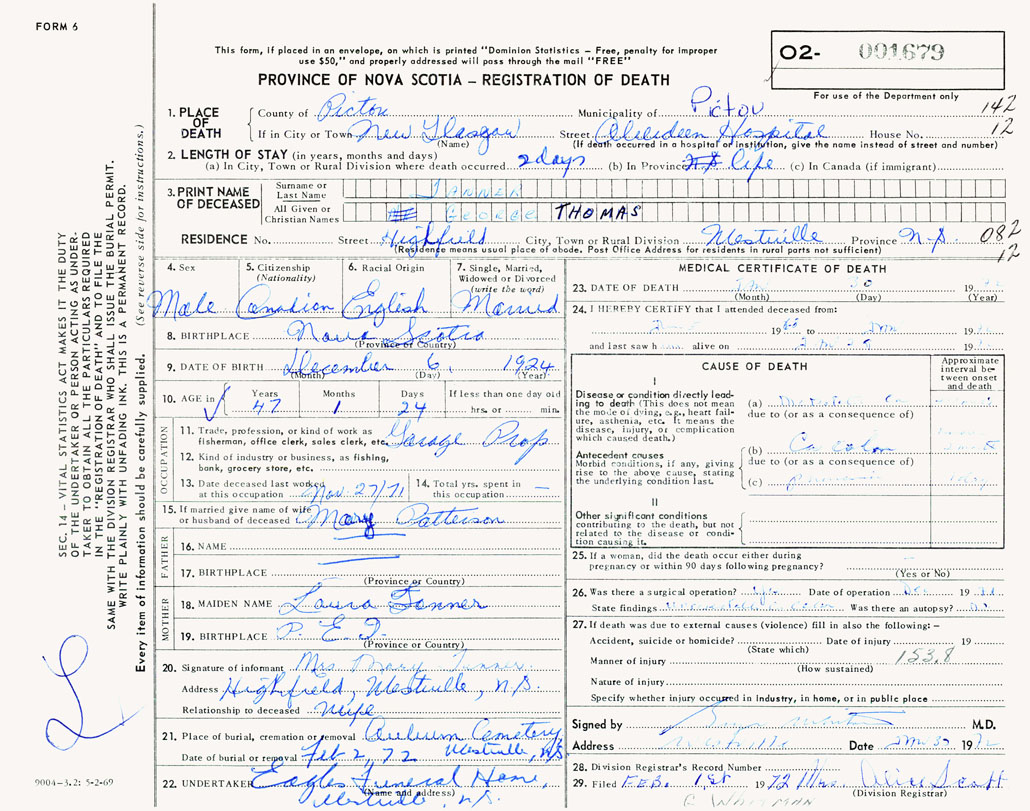 FORM 6
This form, if placed in an envelope, on which is printed "Dominion Statistics — Free, penalty for improper
use $50," and properly addressed will pass through the mail "FREE"
PROVINCE OF NOVA SCOTIA — REGISTRATION OF DEATH
O2- 001679
For use of the Department only
1. PLACE OF DEATH
County of Pictou Municipality of Pictou 142
If in City or Town New Glasgow Street Aberdeen Hospital House No. 12
(Name) (If death occurred in a hospital or institution, give the name instead of street and number)
2. LENGTH OF STAY (in years, months and days)
(a) In City, Town or Rural Division where death occurred 2 days (b) In Province Life (c) In Canada (if immigrant)
3. PRINT NAME OF DECEASED
Surname or Last Name TANNER
All Given or Christian Names GEORGE THOMAS
RESIDENCE No. Street Highfield City, Town or Rural Division Westville Province N.S. 082
(Residence means usual place of abode. Post Office Address for residents in rural parts not sufficient) 12
4. Sex Male
5. Citizenship (Nationality) Canadian
6. Racial Origin English
7. Single, Married, Widowed or Divorced (write the word) Married
8. BIRTHPLACE Nova Scotia
(Province or Country)
9. DATE OF BIRTH December 6, 1924
(Month) (Day) (Year)
10. AGE in Years 47 Months 1 Days 24 If less than one day old hrs. or min.
OCCUPATION
11. Trade, profession, or kind of work as
fisherman, office clerk, sales clerk, etc. Garage Prop
12. Kind of industry or business, as fishing,
bank, grocery store, etc.
13. Date deceased last worked at this occupation Nov. 27/71
14. Total yrs. spent in this occupation —
15. If married give name of wife
or husband of deceased Mary Patterson
FATHER
16. NAME
17. BIRTHPLACE
(Province or Country)
MOTHER
18. MAIDEN NAME Laura Tanner
19. BIRTHPLACE P. E. I.
(Province or Country)
20. Signature of informant Mrs Mary Tanner
Address Highfield, Westville, N.S.
Relationship to deceased Wife
21. Place of burial, cremation or removal Auburn Cemetery
Date of burial or removal Feb 2, 72 Westville, NS
22. UNDERTAKER Eagles Funeral Home,
(Name and address)
Westville, N.S.
MEDICAL CERTIFICATE OF DEATH
23. DATE OF DEATH 30 19
(Month) (Day) (Year)
24. I HEREBY CERTIFY that I attended deceased from:
19 to 19
and last saw h alive on 19
CAUSE OF DEATH
Approximate interval between onset and death
I
Disease or condition directly leading to death (This does not mean
the mode of dying, e.g., heart failure, asthenia, etc. It means the
disease, injury, or complication
which caused death.)
(a)
due to (or as a consequence of)
Antecedent causes
Morbid conditions, if any, giving
rise to the above cause, stating
the underlying condition last.
(b) Ca colon
due to (or as a consequence of)
(c)
II
Other significant conditions
contributing to the death, but not
related to the disease or condition causing it.
25. If a woman, did the death occur either during
pregnancy or within 90 days following pregnancy? —
(Yes or No)
26. Was there a surgical operation? Date of operation 19
State findings Was there an autopsy?
27. If death was due to external causes (violence) fill in also the following: —
Accident, suicide or homicide? Date of injury 19
(State which)
Manner of injury 153.8
(How sustained)
Nature of injury
Specify whether injury occurred in industry, in home, or in public place
Signed by M.D.
Address Westville Date 19
28. Division Registrar's Record Number
29. Filed FEB. 1st 1972 Mrs. Alice Scott
(Division Registrar)
SEC. 14 — VITAL STATISTICS ACT MAKES IT THE DUTY
OF THE UNDERTAKER OR PERSON ACTING AS UNDER-
TAKER TO OBTAIN ALL THE PARTICULARS REQUIRED
IN THE "REGISTRATION OF DEATH" AND TO FILE THE
SAME WITH THE DIVISION REGISTRAR WHO SHALL ISSUE THE BURIAL PERMIT.
WRITE PLAINLY WITH UNFADING INK. THIS IS A PERMANENT RECORD.
Every item of information should be carefully supplied. (See reverse side for instructions.)
9004-3.2: 5-2-69